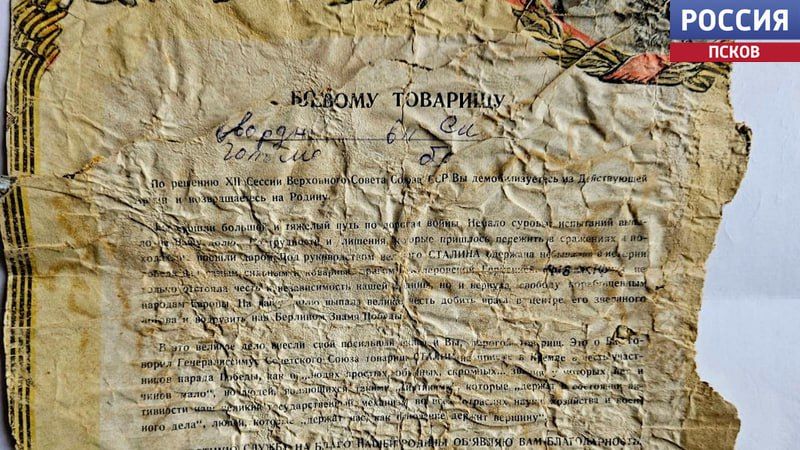 РОССИЯ
ПСКОВ
БОЕВОМУ ТОВАРИЩУ
По решению XII Сессии Верховного Совета Союза ССР Вы демобилизуетесь из Действующей
Армии и возвращаетесь на Родину.
большой и тяжелый путь по дорогам войны. Немало суровых испытаний выпа-
ло на Вашу долю. трудности и лишения, которые пришлось пережить в сражениях и по-
ходах, прошли даром. Под руководством великого СТАЛИНА одержана в истории
победа сильным и коварным врагом Германией. не
только отстояла честь и независимость нашей но и вернула свободу порабощенным
народам Европы. На долю выпала великая честь добить врага в центре его звериного
логова и водрузить над Берлином Знамя Победы.
В это великое дело внесли свой посильный и Вы, дорогой товарищ. Это о Вас го-
ворил Генералиссимус Советского Союза товарищ СТАЛИН на приеме в Кремле в честь участ-
ников парада Победы, как о „людях простых, обычных, скромных“... у которых нет и
чинов мало“, но людей, являющихся такими „винтиками“, которые „держат в состоянии ак-
тивности наш великий государственный механизм во всех отраслях науки, хозяйства и воен-
ного дела“, людей, которые „держат нас, как основание держит вершину“.
СЛУЖБУ НА БЛАГО НАШЕЙ РОДИНЫ ОБ'ЯВЛЯЮ ВАМ БЛАГОДАРНОСТЬ.